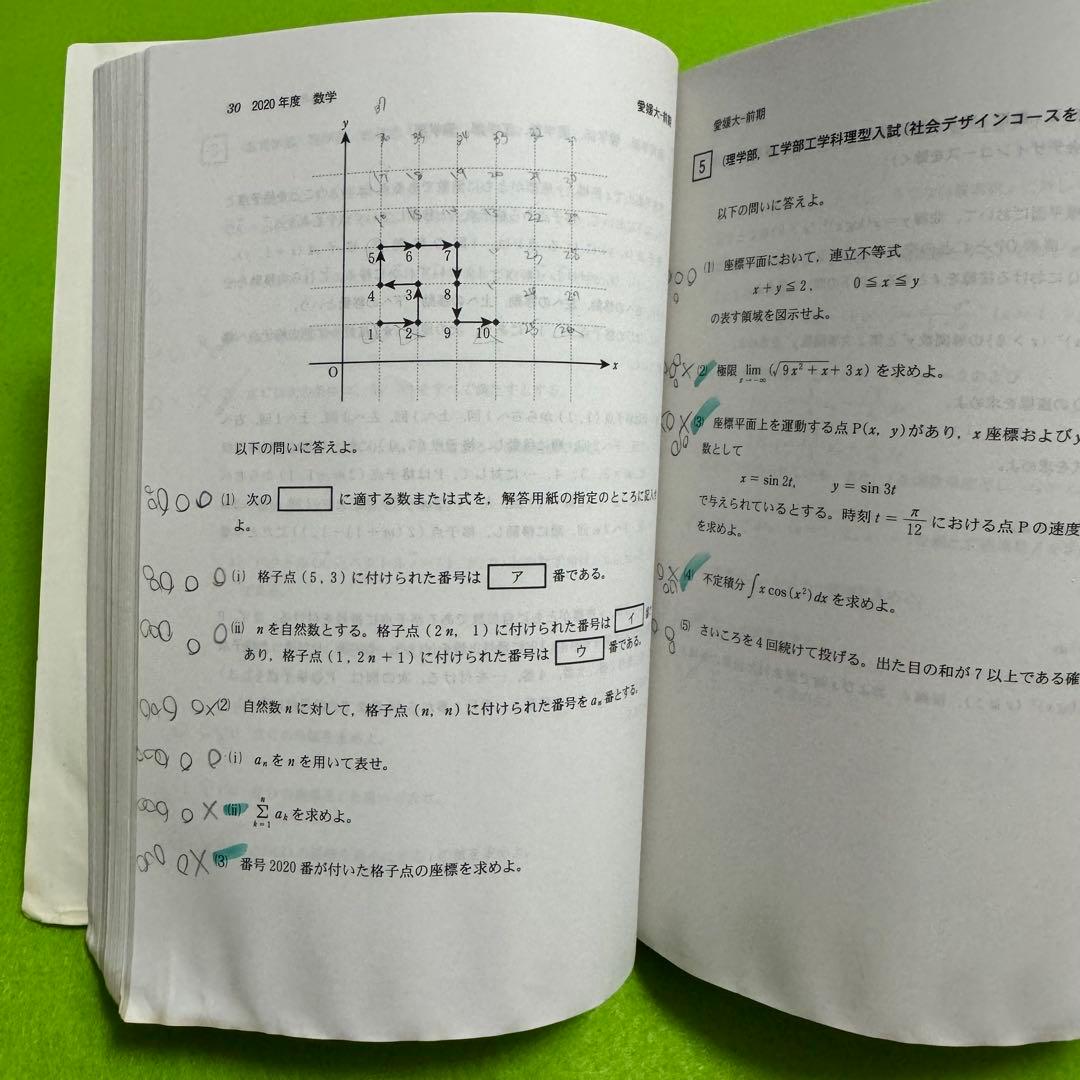 30 2020年度 数学
愛媛大-前期
y
5 6 7
4 3 8
1 2 9 10
O
x
以下の問いに答えよ。
(1) 次の に適する数または式を，解答用紙の指定のところに記入
よ。
(i) 格子点(5, 3)に付けられた番号は ア 番である。
(ii) nを自然数とする。格子点(2n, 1)に付けられた番号は イ 番
あり，格子点(1, 2n+1)に付けられた番号は ウ 番である。
(2) 自然数nに対して，格子点(n, n)に付けられた番号をaₙ番とする。
(i) aₙをnを用いて表せ。
(ii) n∑k=1 aₖを求めよ。
(3) 番号2020番が付いた格子点の座標を求めよ。
愛媛大-前期
5 (理学部，工学部工学科理型入試(社会デザインコースを
以下の問いに答えよ。
(1) 座標平面において，連立不等式
x+y≦2, 0≦x≦y
の表す領域を図示せよ。
(2) 極限 lim x→-∞ (√9x²+x+3x)を求めよ。
(3) 座標平面上を運動する点P(x, y)があり，x座標およびy
数として
x=sin 2t, y=sin 3t
で与えられているとする。時刻 t=π/12 における点Pの速度
を求めよ。
(4) 不定積分∫x cos(x²)dxを求めよ。
(5) さいころを4回続けて投げる。出た目の和が7以上である確